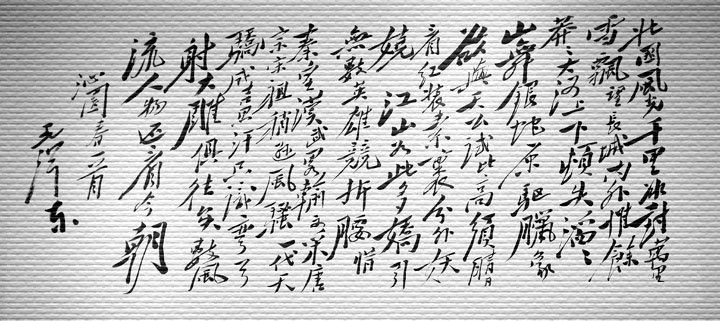 北國風光千里冰封萬里
雪飄望長城内外惟餘
莽々大河上下頓失滔々
山舞銀蛇原驅臘象
欲與天公試比高須晴
日看紅裝素裹分外妖
嬈江山如此多嬌引
無數英雄競折腰惜
秦皇漢武略輸文采唐
宗宋祖稍遜風騷一代天
驕成吉思汗只識彎弓
射大雕俱往矣數風
流人物還看今朝
沁園春一首
毛澤東